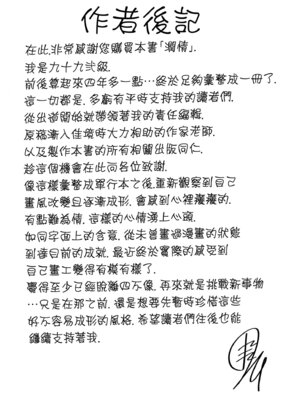 作者後記
在此,非常感謝您購買本書「濁情」.
我是九十九弐級.
前後算起來四年多一點…終於足夠彙整成一冊了.
這一切都是,多虧有平時支持我的讀者們.
從出道開始就帶領著我的責任編輯.
原稿漸入佳境時大力相助的作家老師.
以及製作本書的所有相關出版同仁.
趁這個機會在此向各位致謝.
像這樣彙整成單行本之後,重新觀察到自己
畫風改變自逐漸成形,會感到心裡癢癢的.
有種難為情,這樣的心情湧上心頭.
如同字面上的含意,從未曾畫過漫畫的狀態
到參目前的成就,最近終於實際的感受到
自己畫工變得有模有樣了.
覺得至少已經脫離四不像,再來就是挑戰新事物
…只是在那之前,還是想要先暫時珍惜這些
好不容易成形的風格,希望讀者們往後也能
繼續支持著我.